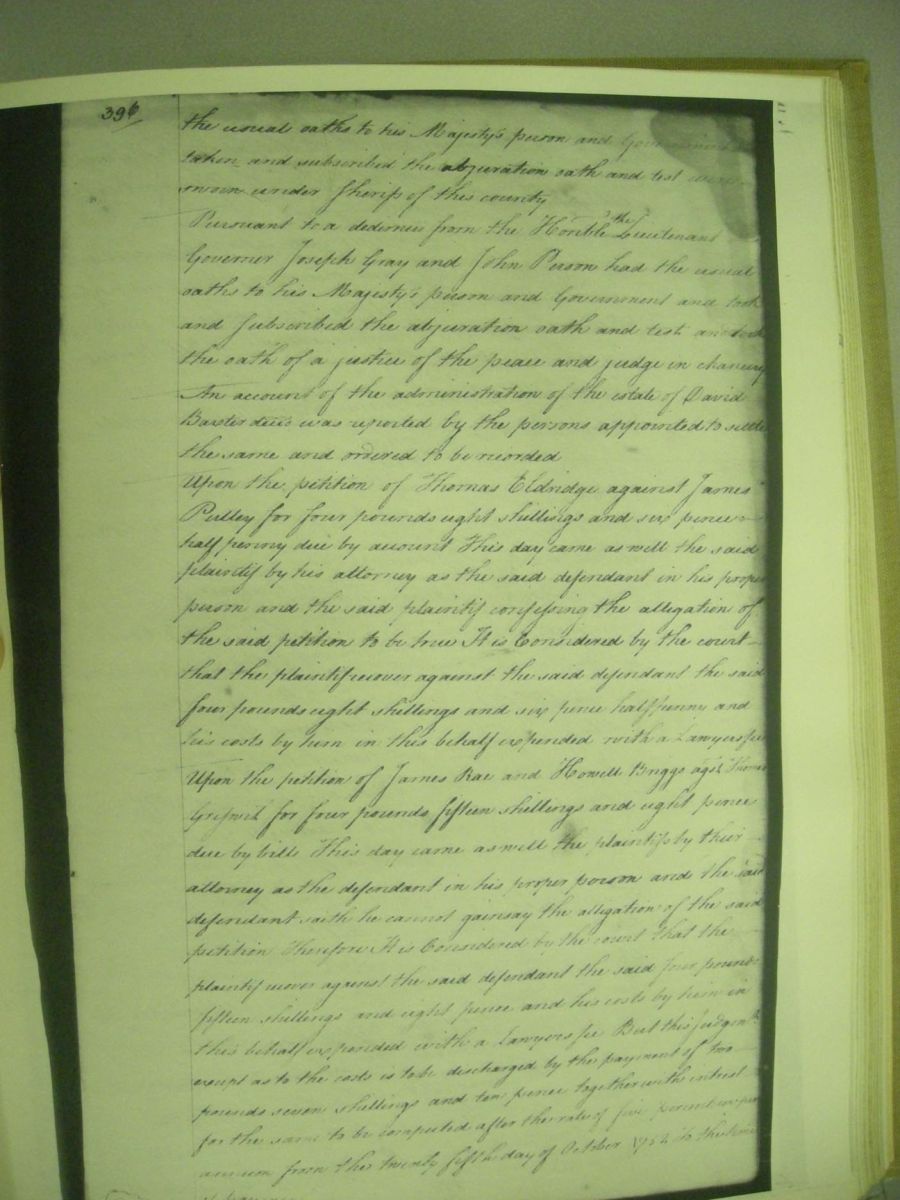 396
the usual oaths to his Majesty's person and Government
taken and subscribed the abjuration oath and test
sworn under Sherif of this county
Pursuant to a dedimus from the Honble the Lieutenant
Governer Joseph Gray and John Person had the usual
oaths to his Majesty's person and Government and took
and subscribed the abjuration oath and test and took
the oath of a justice of the peace and judge in chancery
An account of the administration of the estate of David
decd was reported by the persons appointed to settle
the same and ordered to be recorded
Upon the petition of Thomas Eldridge against James
Pulley for four pounds eight shillings and six pence
half penny due by account This day came as well the said
plaintif by his attorney as the said defendant in his proper
person and the said plaintif confessing the allegation of
the said petition to be true It is Considered by the court
that the plaintif recover against the said defendant the said
four pounds eight shillings and six pence half penny and
his costs by him in this behalf expended with a Lawyers fee
Upon the petition of James Rae and Howell Briggs agst Thomas
for four pounds fifteen shillings and eight pence
due by bill This day came as well the plaintifs by their
attorney as the defendant in his proper person and the said
defendant saith he cannot gainsay the allegation of the said
petition Therefore It is Considered by the court that the
plaintif recover against the said defendant the said four pounds
fifteen shillings and eight pence and his costs by him in
this behalf expended with a Lawyers fee But this judgmt
except as to the costs is to be discharged by the payment of two
pounds seven shillings and ten pence together with intrest
for the same to be computed after the rate of five percent per
annum from the twenty fifth day of October to the time